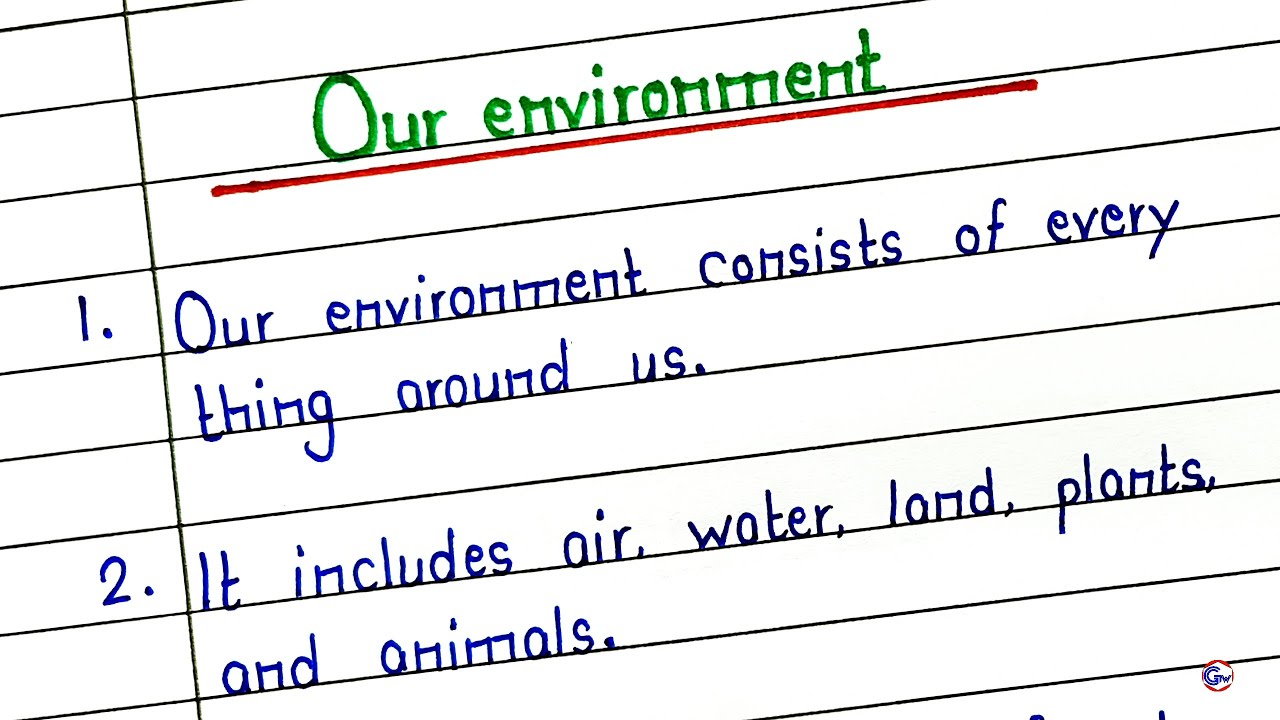 Our environment
1. Our environment consists of every
thing around us.
2. It includes air, water, land, plants,
and animals.